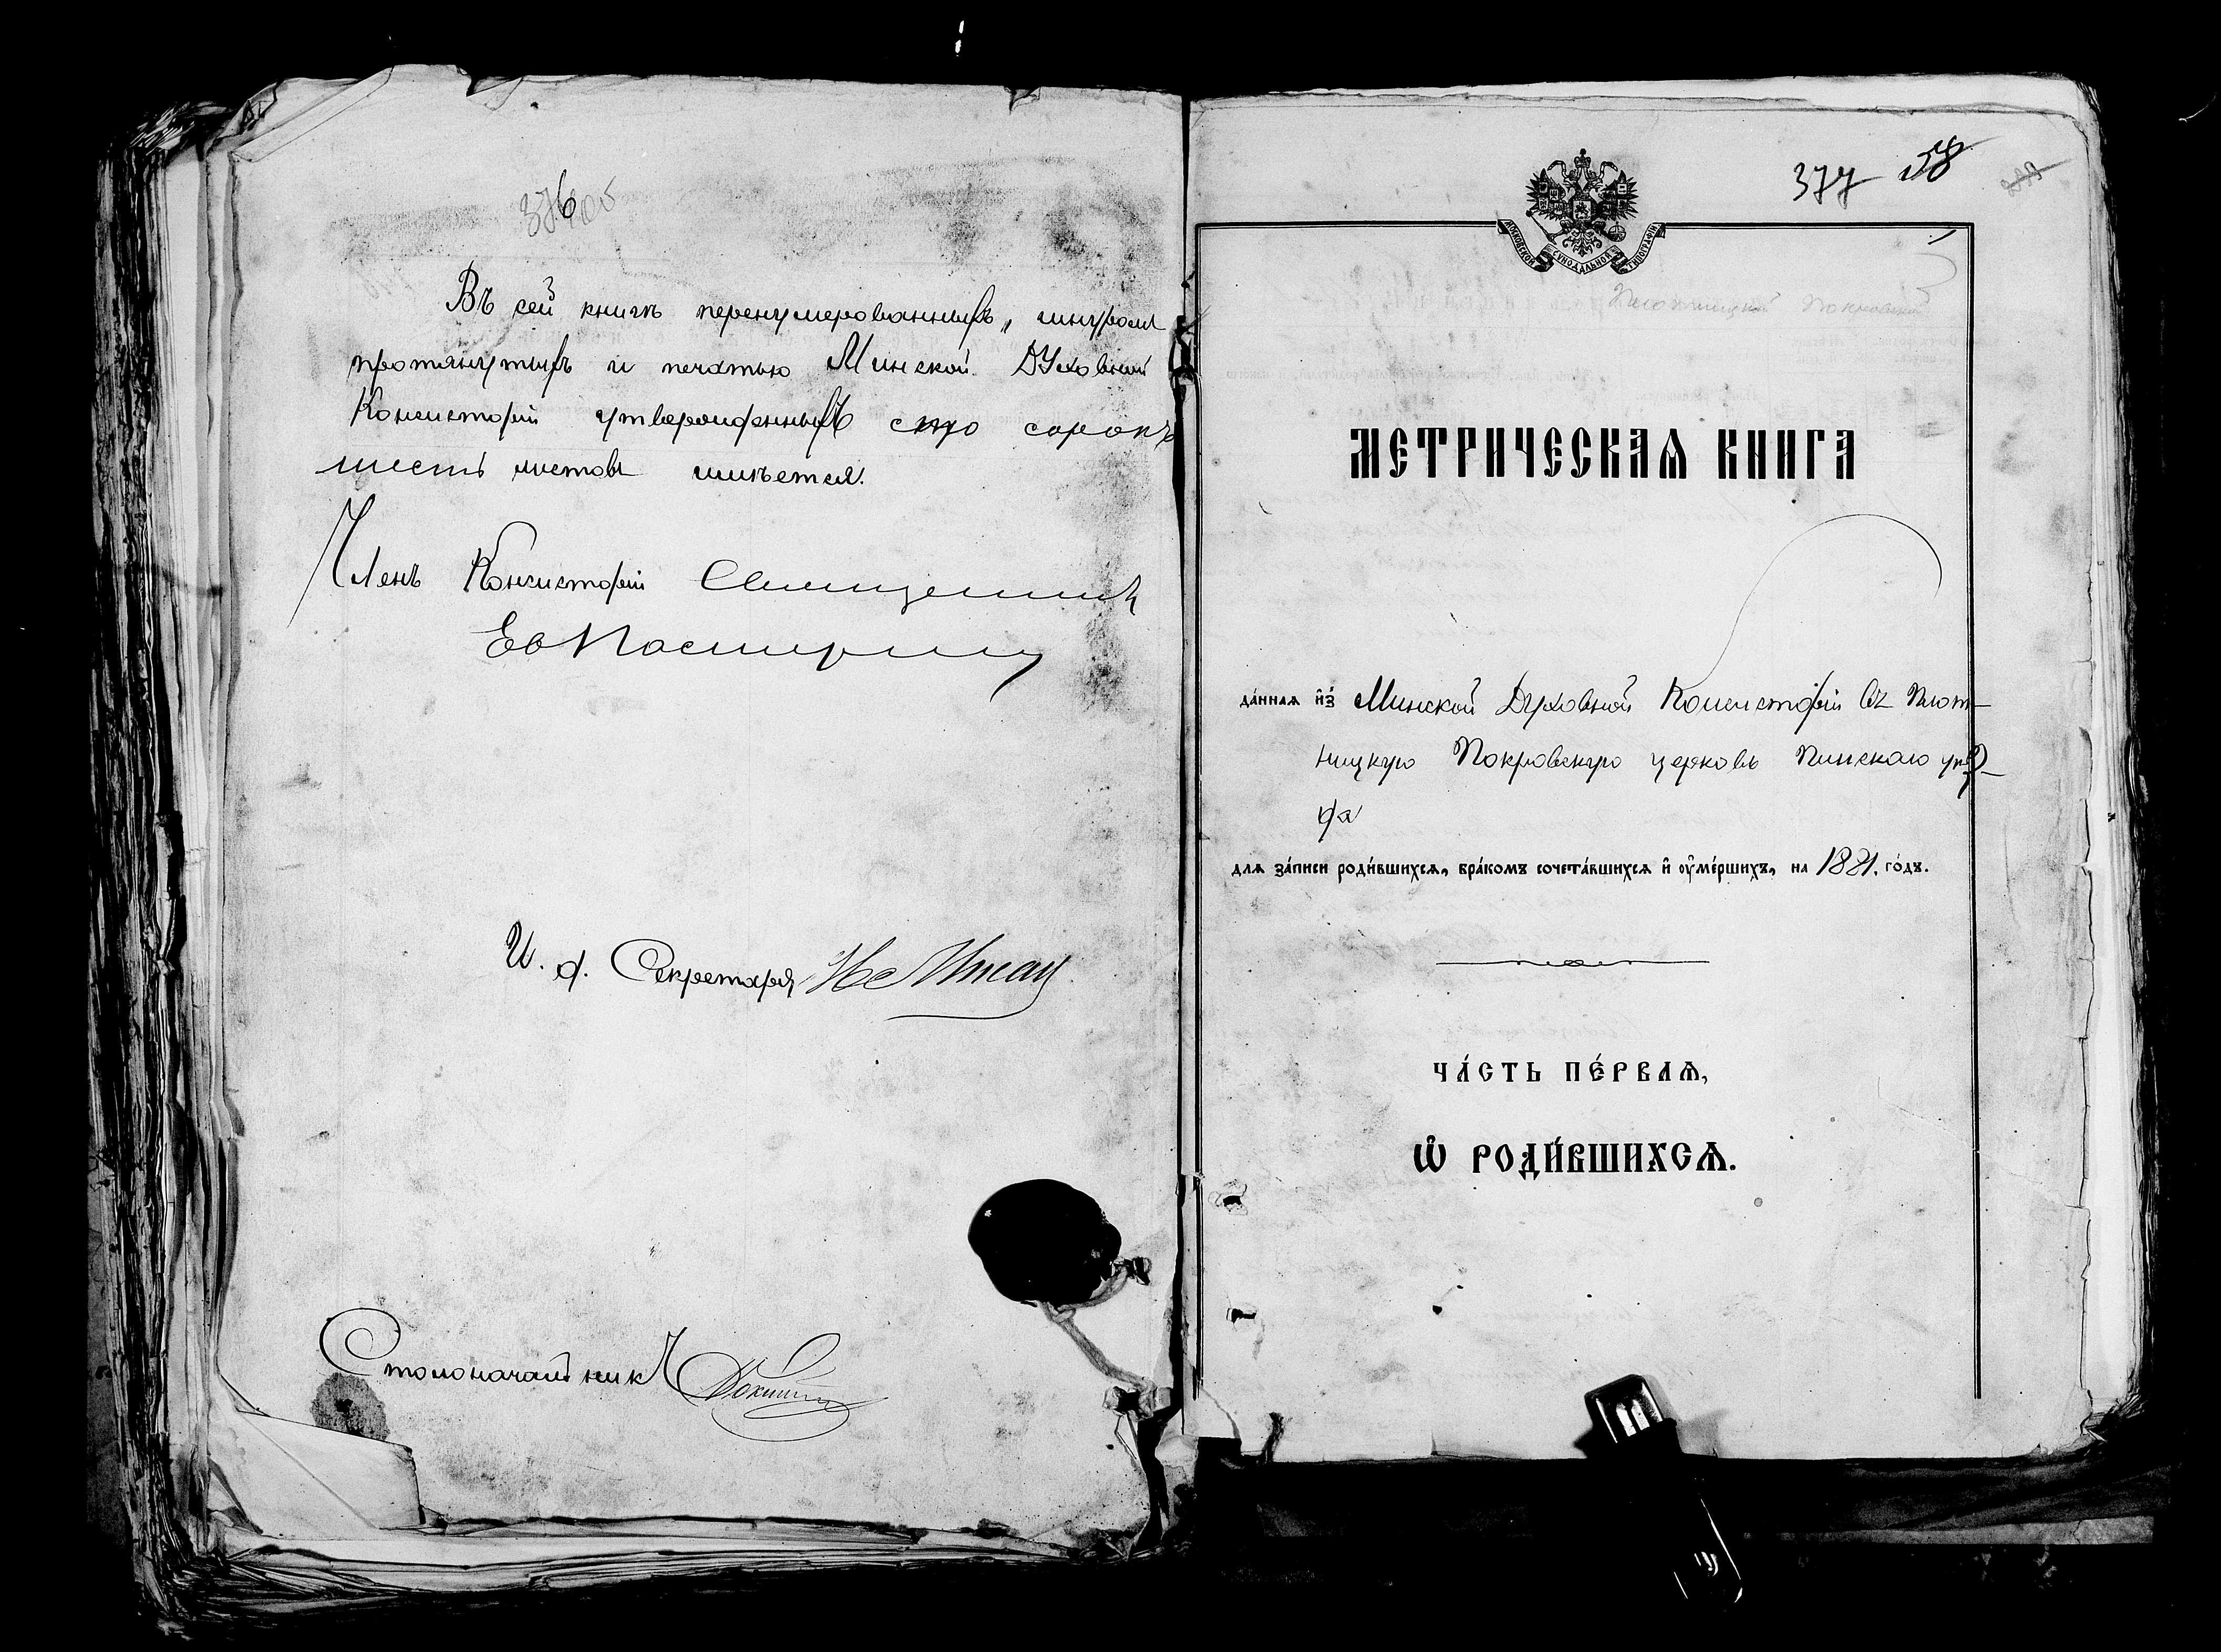 376
Въ сей книгѣ перенумерованныхъ, шнуромъ
протянутыхъ и печатью Минской Духовной
Консисторіи утвержденныхъ сто сорокъ
шесть листовъ имѣется.
Членъ Консисторіи Священникъ
И. д. Секретаря
Столоначальникъ
377 58
МОСКОВСКОЙ СѴНОДАЛЬНОЙ ТИПОГРАФІИ
1
Плотницкой Покровской
МЕТРИЧЕСКАѦ КНИГА
да́ннаѧ и҆з̾ Минской Духовной Консисторіи въ Плот-
ницкую Покровскую церковь Пинскаго уѣз-
да
длѧ за́писи роди́вшихсѧ, бра́комъ сочета́вшихсѧ и҆ ѹ҆ме́ршихъ, на 1881. го́дъ.
ЧА́СТЬ ПЕ́РВАѦ,
Ѽ РОДИ́ВШИХСѦ.